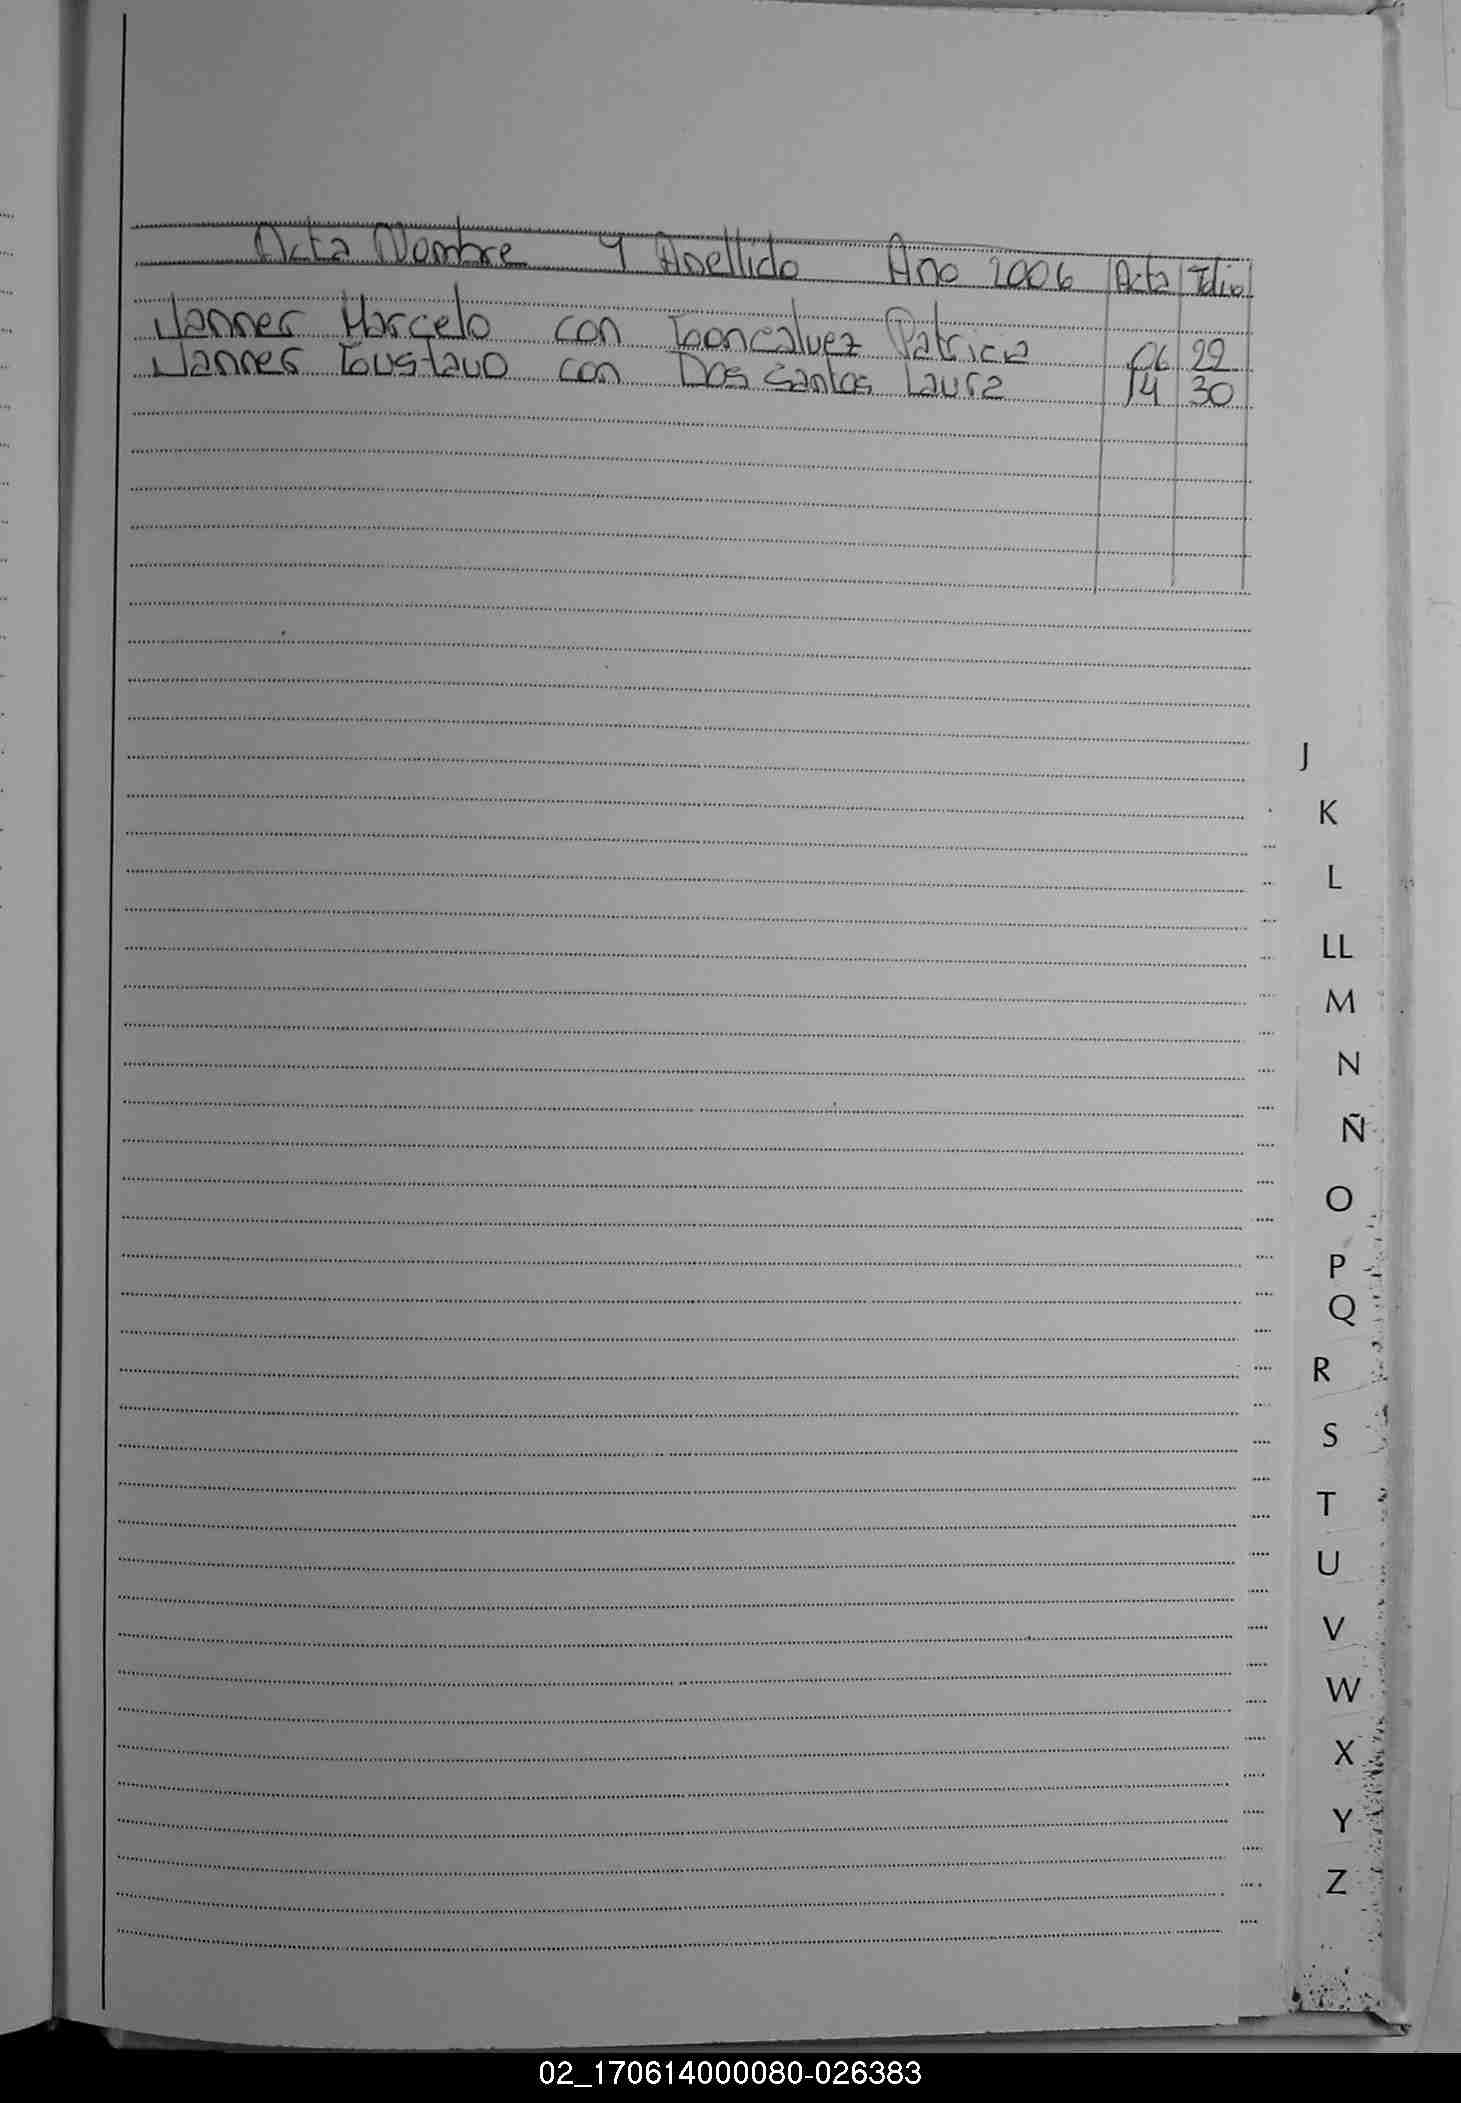 Acta Nombre Y Apellido Año 2006 Acta Folio
Janner Marcelo con Goncalvez Patricia 06 22
Janner Gustavo con Dos Santos Laura 14 30
J
K
L
LL
M
N
Ñ
O
P
Q
R
S
T
U
V
W
X
Y
Z
02_170614000080-026383